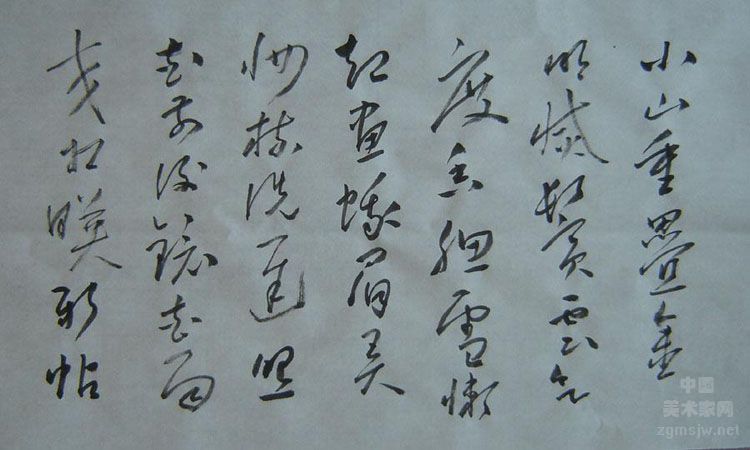 小山重疊金
明滅鬢雲欲
度香腮雪懶
起畫蛾眉弄
妝梳洗遲照
花前後鏡花面
交相映新帖
中国
美术家网
zgmsjw.net